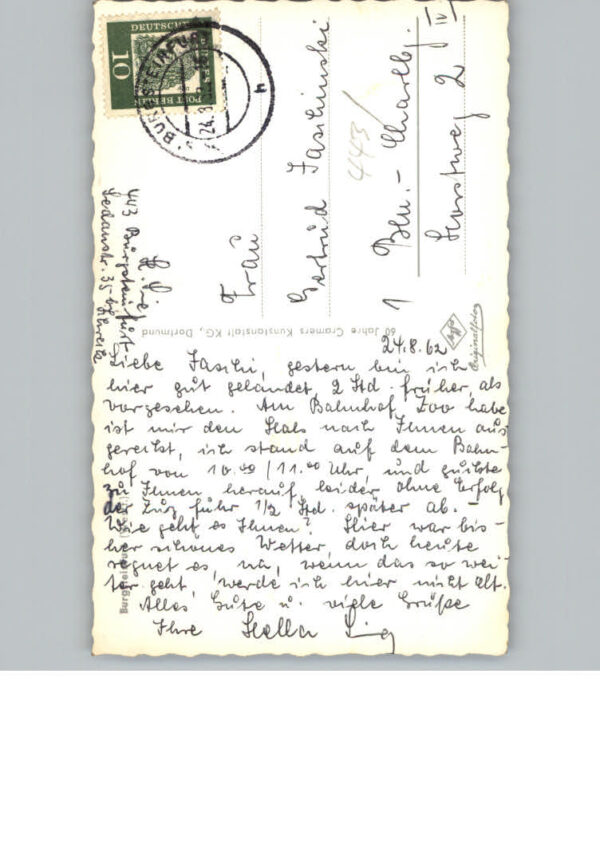 DEUTSCHE
POST BERLIN
10
BURGSTEINFURT
24.8.
h
Frau
Gertrud Jaschinski
443
1 Bln.-Charlbg.
Horstweg 2 IV
443 Burgsteinfurt
Sedanstr. 35
60 Jahre Cramers Kunstanstalt KG., Dortmund
Originalfoto
24.8.62
Liebe Jaschi, gestern bin ich
hier gut gelandet, 2 Std. früher, als
vorgesehen. Am Bahnhof Zoo habe
ist mir den Hals nach Ihnen aus
gereckt, ich stand auf dem Bahn-
hof von 10.40/11.00 Uhr, und guckte
zu Ihnen herauf, leider ohne Erfolg
der Zug fuhr 1/2 Std. später ab. -
Wie geht es Ihnen? Hier war bis-
her schönes Wetter, doch heute
regnet es, na, wenn das so wei-
ter geht, werde ich hier nicht alt.
Alles Gute u. viele Grüße
Ihre Hella